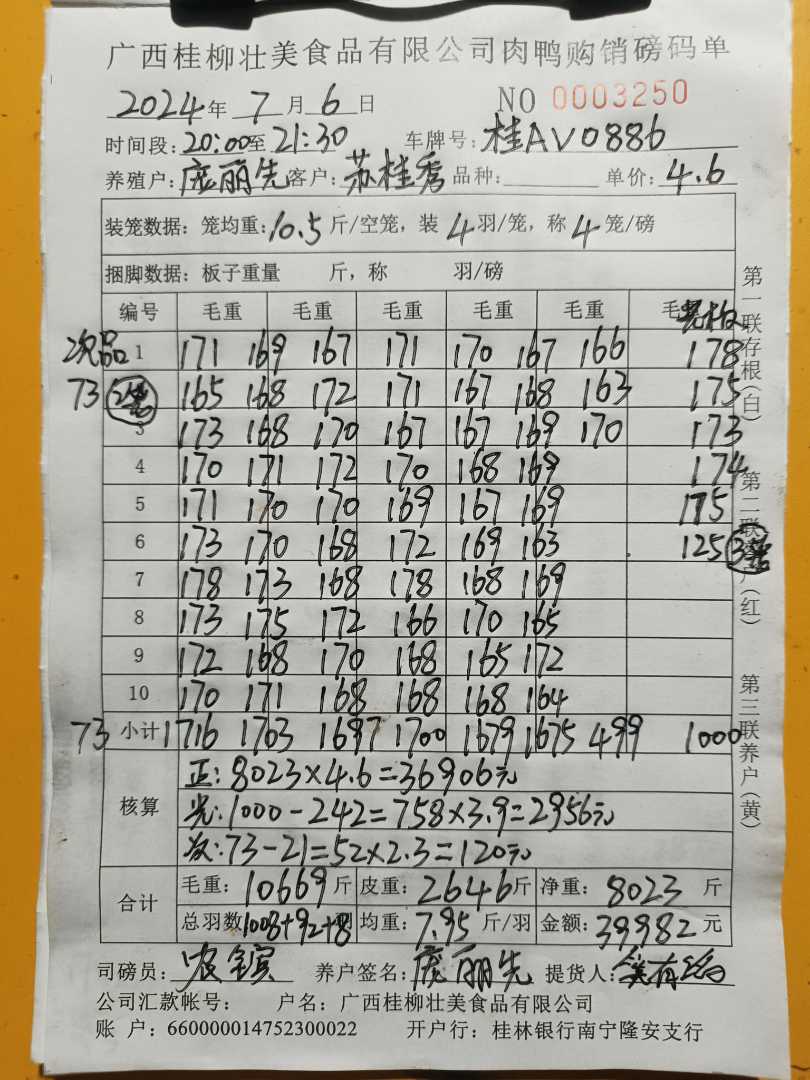 广西桂柳壮美食品有限公司肉鸭购销磅码单
2024年 7月 6日 NO 0003250
时间段:20:00至21:30 车牌号:桂AV0886
养殖户:庞丽先 客户:苏桂秀 品种: 单价:4.6
装笼数据:笼均重:10.5斤/空笼,装4羽/笼,称4笼/磅
捆脚数据:板子重量 斤,称 羽/磅
编号 毛重 毛重 毛重 毛重 毛重
次品 1 171 169 167 171 170 167 166 178
73 165 168 172 171 167 168 163 175
3 173 168 170 167 167 169 170 173
4 170 171 172 170 168 169 174
5 171 170 170 169 167 169 175
6 173 170 168 172 169 163 125
7 178 173 168 178 168 169
8 173 175 172 166 170 165
9 172 168 170 168 165 172
10 170 171 168 168 168 164
73 小计 1716 1703 1697 1700 1679 1675 499 1000
核算
正:8023×4.6=36906元
光:1000-242=758×3.9=2956元
次:73-21=52×2.3=120元
合计
毛重:10669斤 皮重:2646斤 净重:8023斤
总羽数1008+92+8 均重:7.95斤/羽 金额:39982元
司磅员: 养户签名:庞丽先 提货人:
公司汇款帐号: 户名:广西桂柳壮美食品有限公司
账 户:660000014752300022 开户行:桂林银行南宁隆安支行
第一联存根(白)
第二联 (红)
第三联养户(黄)